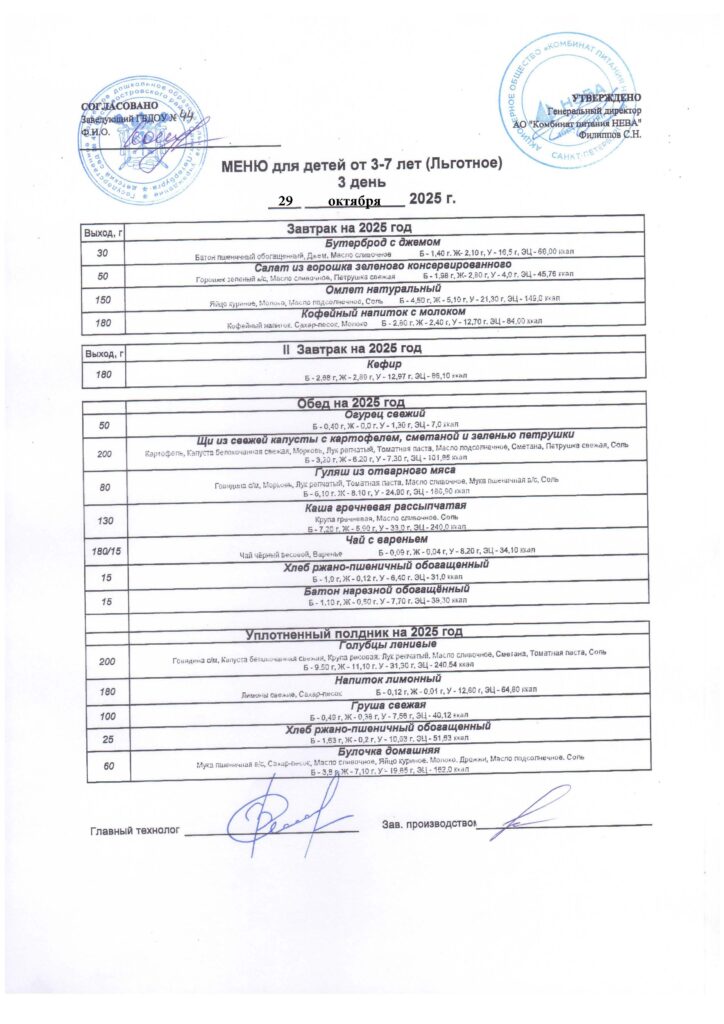 СОГЛАСОВАНО
Заведующий ГБДОУ № 44
Ф.И.О.
УТВЕРЖДЕНО
Генеральный директор
АО "Комбинат питания НЕВА"
Филиппов С.Н.
МЕНЮ для детей от 3-7 лет (Льготное)
3 день
29 октября 2025 г.
Выход, г Завтрак на 2025 год
Бутерброд с джемом
30 Батон пшеничный обогащенный, Джем, Масло сливочное Б - 1,40 г, Ж- 2,10 г, У - 16,5 г, ЭЦ - 66,00 ккал
Салат из горошка зеленого консервированного
50 Горошек зеленый к/с, Масло сливочное, Петрушка свежая Б - 1,98 г, Ж- 2,80 г, У - 4,0 г, ЭЦ - 45,76 ккал
Омлет натуральный
150 Яйцо куриное, Молоко, Масло подсолнечное, Соль Б - 4,50 г, Ж - 5,10 г, У - 21,30 г, ЭЦ - 149,0 ккал
Кофейный напиток с молоком
180 Кофейный напиток, Сахар-песок, Молоко Б - 2,60 г, Ж - 2,40 г, У - 12,70 г, ЭЦ - 84,00 ккал
Выход, г II Завтрак на 2025 год
Кефир
180 Б - 2,68 г, Ж - 2,89 г, У - 12,97 г, ЭЦ - 86,10 ккал
Обед на 2025 год
Огурец свежий
50 Б - 0,40 г, Ж - 0,0 г, У - 1,30 г, ЭЦ - 7,0 ккал
Щи из свежей капусты с картофелем, сметаной и зеленью петрушки
200 Картофель, Капуста белокочанная свежая, Морковь, Лук репчатый, Томатная паста, Масло подсолнечное, Сметана, Петрушка свежая, Соль
Б - 3,20 г, Ж - 6,20 г, У - 7,30 г, ЭЦ - 101,86 ккал
Гуляш из отварного мяса
80 Говядина с/м, Морковь, Лук репчатый, Томатная паста, Масло сливочное, Мука пшеничная в/с, Соль
Б - 6,10 г, Ж - 8,10 г, У - 24,00 г, ЭЦ - 180,90 ккал
Каша гречневая рассыпчатая
130 Крупа гречневая, Масло сливочное, Соль
Б - 7,20 г, Ж - 5,90 г, У - 33,0 г, ЭЦ - 240,0 ккал
Чай с вареньем
180/15 Чай чёрный весовой, Варенье Б - 0,09 г, Ж - 0,04 г, У - 8,20 г, ЭЦ - 34,10 ккал
Хлеб ржано-пшеничный обогащенный
15 Б - 1,0 г, Ж - 0,12 г, У - 6,40 г, ЭЦ - 31,0 ккал
Батон нарезной обогащённый
15 Б - 1,10 г, Ж - 0,50 г, У - 7,70 г, ЭЦ - 39,30 ккал
Уплотненный полдник на 2025 год
Голубцы ленивые
200 Говядина с/м, Капуста белокочанная свежая, Крупа рисовая, Лук репчатый, Масло сливочное, Сметана, Томатная паста, Соль
Б - 9,50 г, Ж - 11,10 г, У - 31,30 г, ЭЦ - 240,54 ккал
Напиток лимонный
180 Лимоны свежие, Сахар-песок Б - 0,12 г, Ж - 0,01 г, У - 12,60 г, ЭЦ - 64,80 ккал
Груша свежая
100 Б - 0,49 г, Ж - 0,36 г, У - 7,56 г, ЭЦ - 40,12 ккал
Хлеб ржано-пшеничный обогащенный
25 Б - 1,63 г, Ж - 0,2 г, У - 10,63 г, ЭЦ - 51,63 ккал
Булочка домашняя
60 Мука пшеничная в/с, Сахар-песок, Масло сливочное, Яйцо куриное, Молоко, Дрожжи, Масло подсолнечное, Соль
Б - 3,8 г, Ж - 7,10 г, У - 19,85 г, ЭЦ - 162,0 ккал
Главный технолог
Зав. производством